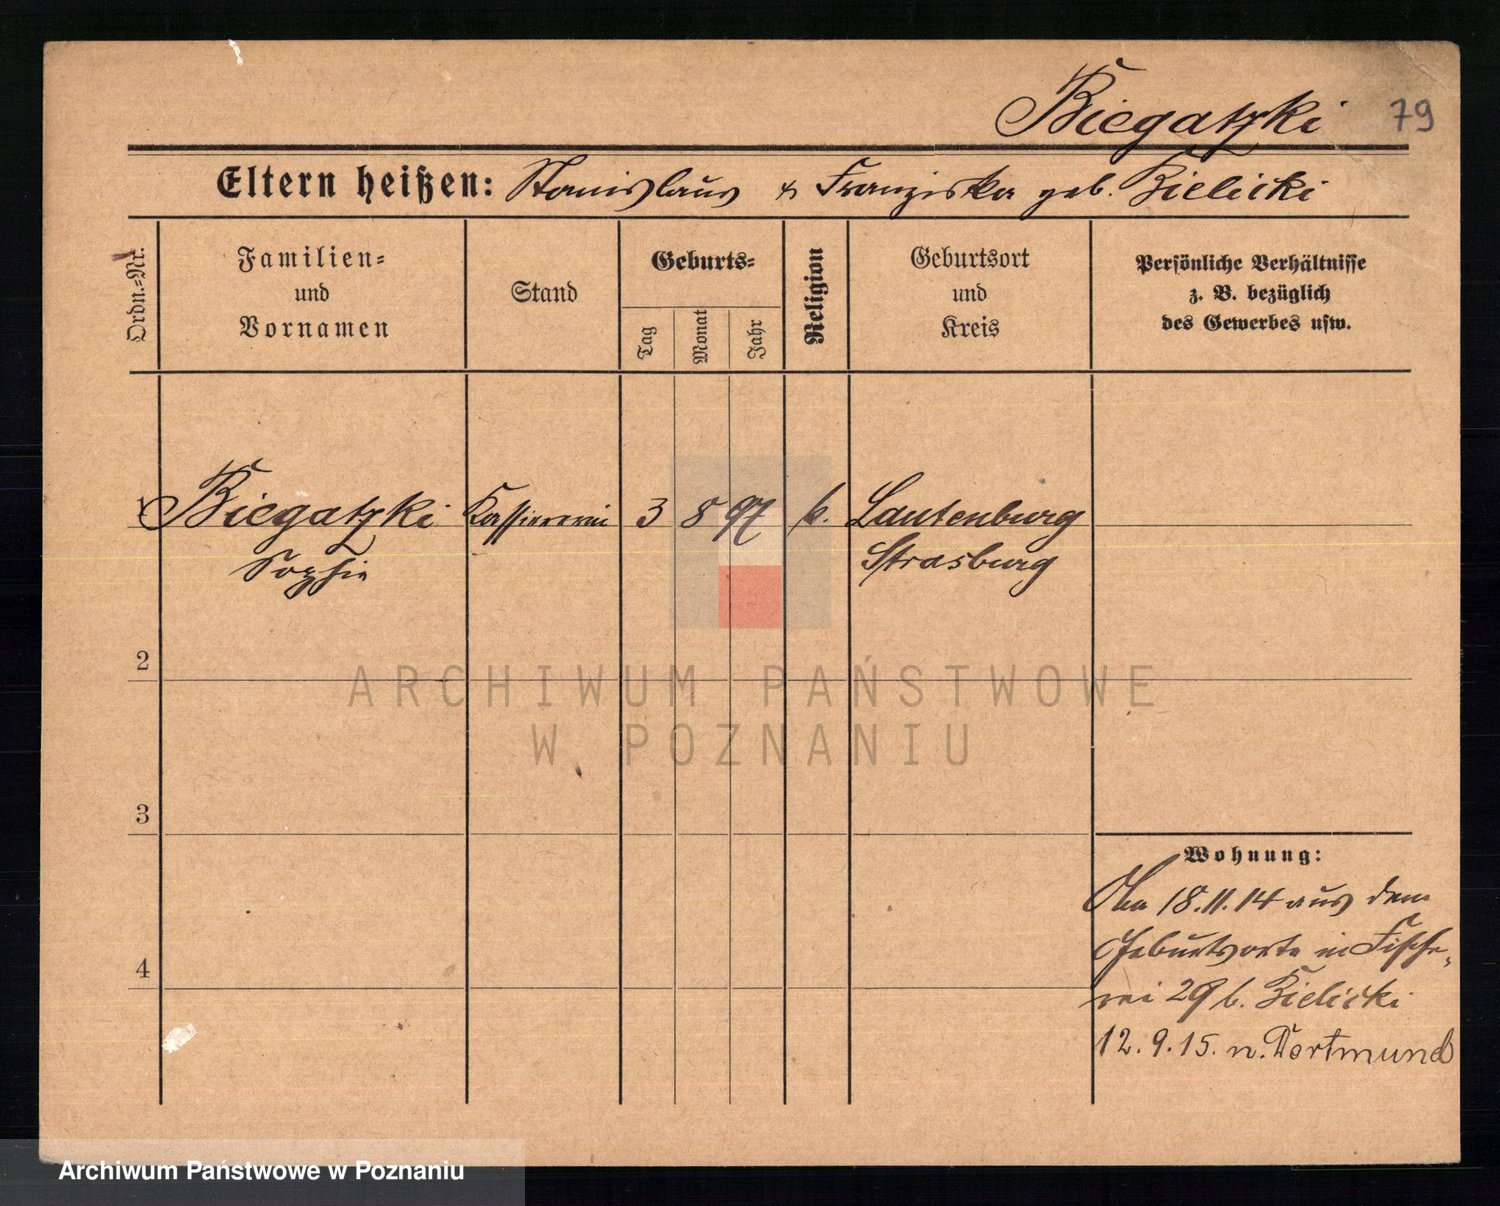 Biegatzki 79
Eltern heißen: Stanislaus & Franziska geb. Bielicki
Ordn.-Nr.
Familien-
und
Vornamen
Stand
Geburts-
Tag
Monat
Jahr
Religion
Geburtsort
und
Kreis
Persönliche Verhältnisse
z. B. bezüglich
des Gewerbes usw.
1 Biegatzki 3 8 97 k. Lautenburg
Sophie Strasburg
2
ARCHIWUM PAŃSTWOWE
W POZNANIU
3
Wohnung:
18.11.14 aus dem
Geburtsorte in Fische-
4
rei 29 b. Bielicki
12.9.15. n. Dortmund
Archiwum Państwowe w Poznaniu